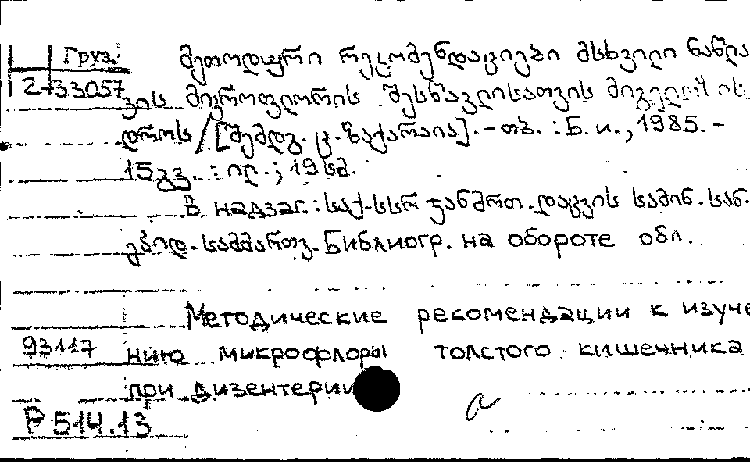 Груз.
2-33057
მეთოდური რეკომენდაციები მსხვილი ნაწლა
ვის მიკროფლორის შესწავლისათვის
დროს / [შემდგ. ც. ზაქარაია]. - თბ. : Б. и., 1985. -
15 გვ. : ил. ; 19 სმ.
В надзаг.: საქ. სსრ ჯანმრთ. დაცვის სამინ. სან.
ეპიდ. სამმართვ. Библиогр. на обороте обл.
Методические рекомендации к изуче
93117 нию микрофлоры толстого кишечника
при дизентерии
Р 514.13